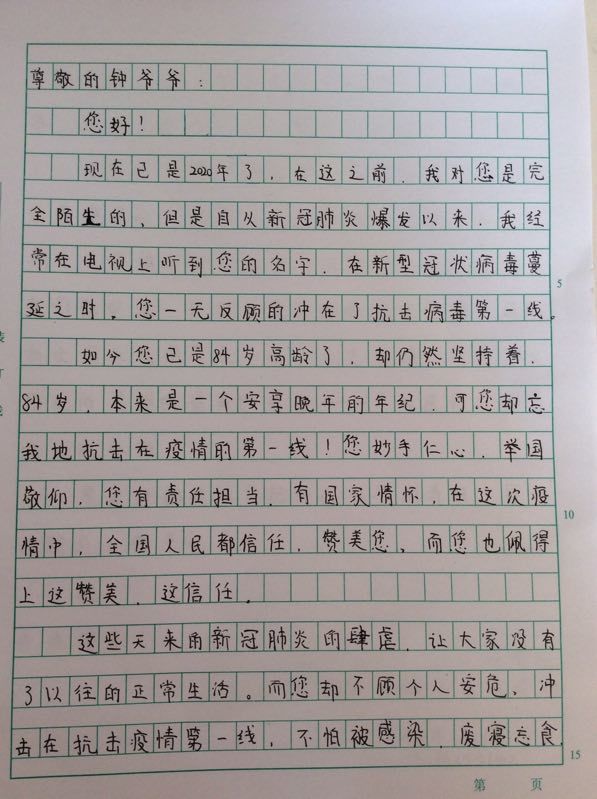 尊敬的钟爷爷：
您好！
现在已是2020年了，在这之前，我对您是完
全陌生的，但是自从新冠肺炎爆发以来，我经
常在电视上听到您的名字，在新型冠状病毒蔓
延之时，您一无反顾的冲在了抗击病毒第一线。
如今您已是84岁高龄了，却仍然坚持着，
84岁，本来是一个安享晚年的年纪，可您却忘
我地抗击在疫情的第一线！您妙手仁心，举国
敬仰，您有责任担当，有国家情怀，在这次疫
情中，全国人民都信任，赞美您，而您也佩得
上这赞美，这信任。
这些天来由新冠肺炎的肆虐，让大家没有
了以往的正常生活。而您却不顾个人安危，冲
击在抗击疫情第一线，不怕被感染，废寝忘食，
5
10
15
第 页